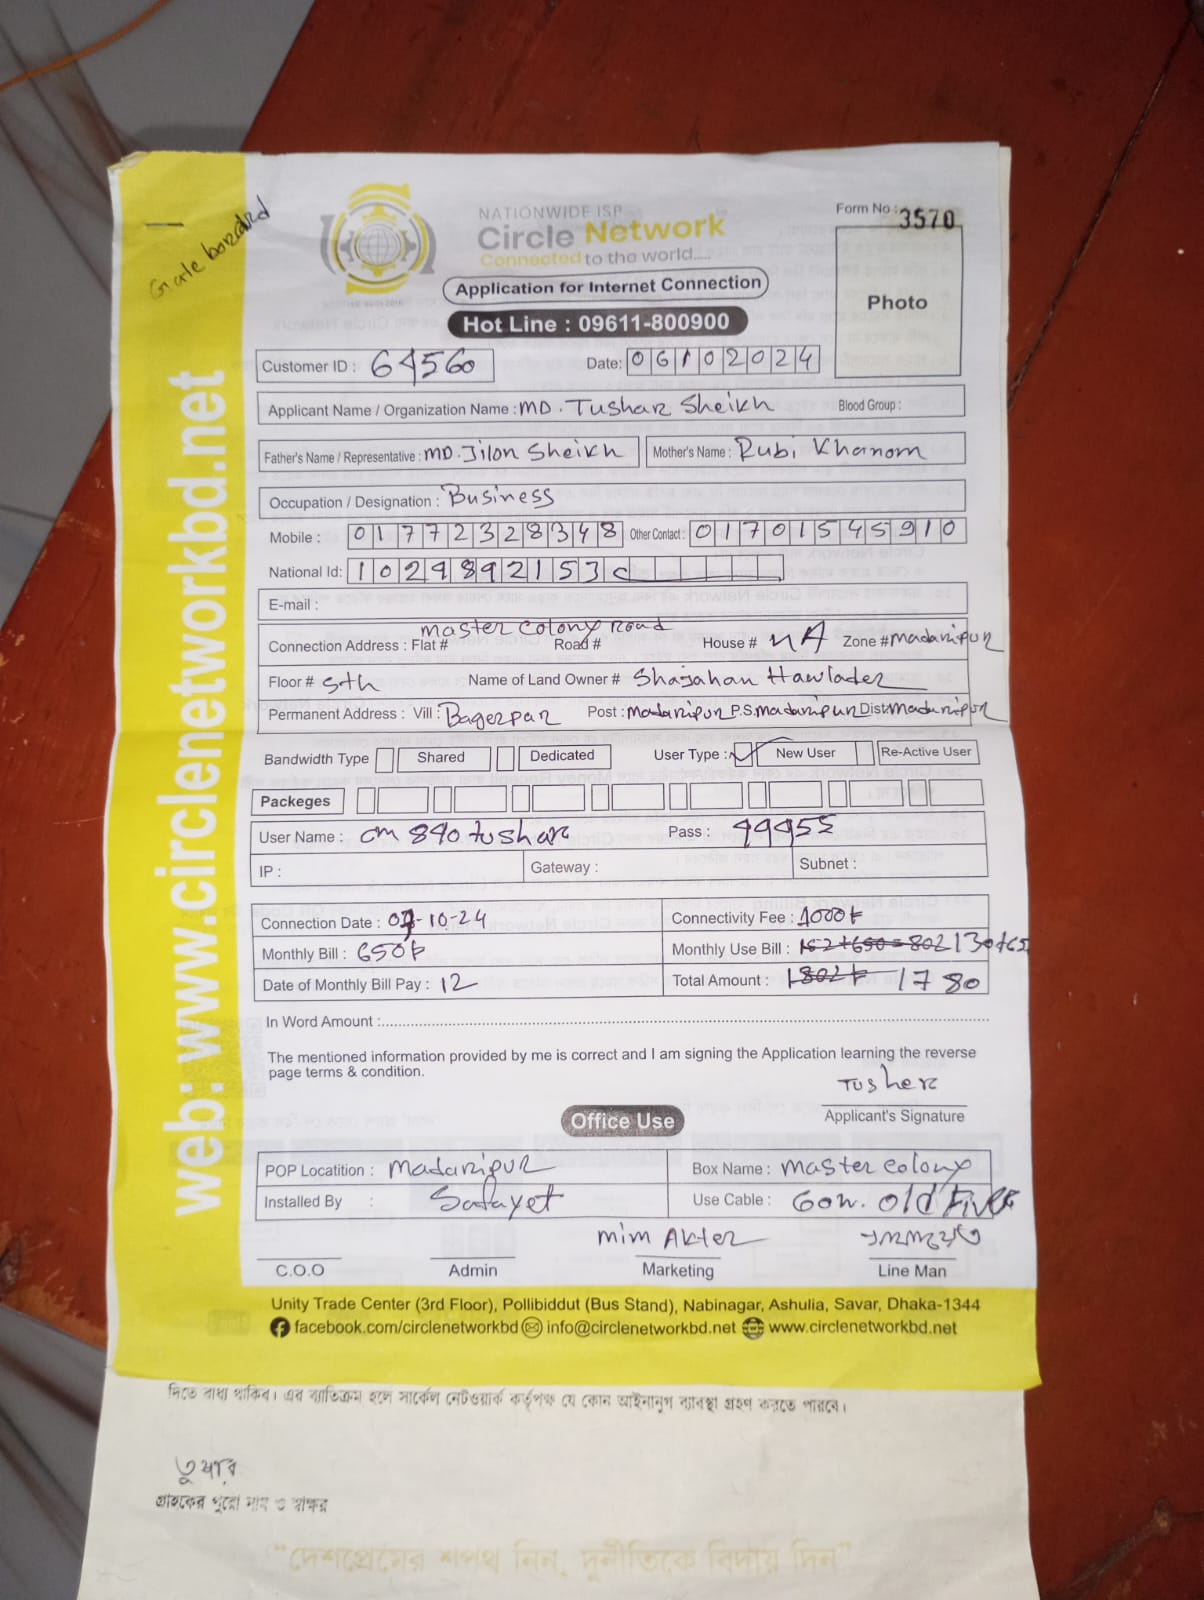 Gate borded
NATIONWIDE ISP
Circle Network
Connected to the world....
Form No : 3570
Application for Internet Connection
Photo
Hot Line : 09611-800900
Customer ID : 64560 Date: 06102024
Applicant Name / Organization Name : MD. Tushar Sheikh Blood Group :
Father's Name / Representative : MD. Jilon Sheikh Mother's Name : Rubi Khanom
Occupation / Designation : Business
Mobile : 01772328348 Other Contact : 01701545910
National Id: 1029892153
E-mail :
master colony Road
Connection Address : Flat # Road # House # NA Zone # madaripur
Floor # 5th Name of Land Owner # Shajahan Hawlader
Permanent Address : Vill : Bagerpar Post : Madaripur P.S. Madaripur Dist: Madaripur
Bandwidth Type Shared Dedicated User Type : New User Re-Active User
Packeges
User Name : cm 890 tushar Pass : 99955
IP : Gateway : Subnet :
Connection Date : 07-10-24 Connectivity Fee : 1000t
Monthly Bill : 650t Monthly Use Bill : 152+650=802 130+65
Date of Monthly Bill Pay : 12 Total Amount : 1802t 1780
In Word Amount :
The mentioned information provided by me is correct and I am signing the Application learning the reverse
page terms & condition.
Tusher
Applicant's Signature
Office Use
POP Locatition : Madaripur Box Name : master colony
Installed By : Safayet Use Cable : Gov. Old
mim Akter
C.O.O Admin Marketing Line Man
Unity Trade Center (3rd Floor), Pollibiddut (Bus Stand), Nabinagar, Ashulia, Savar, Dhaka-1344
facebook.com/circlenetworkbd info@circlenetworkbd.net www.circlenetworkbd.net
web: www.circlenetworkbd.net
দিতে বাধ্য থাকিব। এর ব্যতিক্রম হলে সার্কেল নেটওয়ার্ক কর্তৃপক্ষ যে কোন আইনানুগ ব্যাবস্থা গ্রহণ করতে পারবে।
তুষার
গ্রাহকের পুরো নাম ও স্বাক্ষর
“দেশপ্রেমের শপথ নিন, দুর্নীতিকে বিদায় দিন”